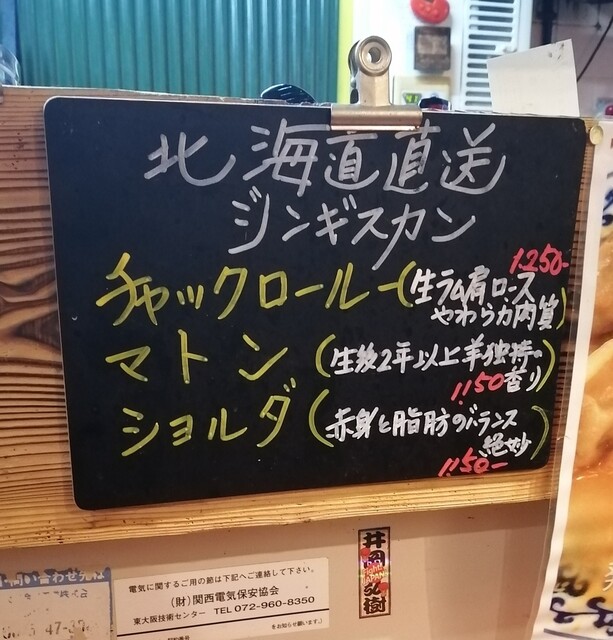 北海道直送
ジンギスカン
1.250-
チャックロール(生ラム肩ロース
やわらカ肉質)
マトン(生後2年以上羊独特の
1,150 香り)
ショルダ(赤身と脂肪のバランス
絶妙)
1,150-
井岡弘樹
電気に関するご用の節は下記へご連絡して下さい。
(財)関西電気保安協会
東大阪技術センター TEL 072-960-8350
をお知らせ願います。)